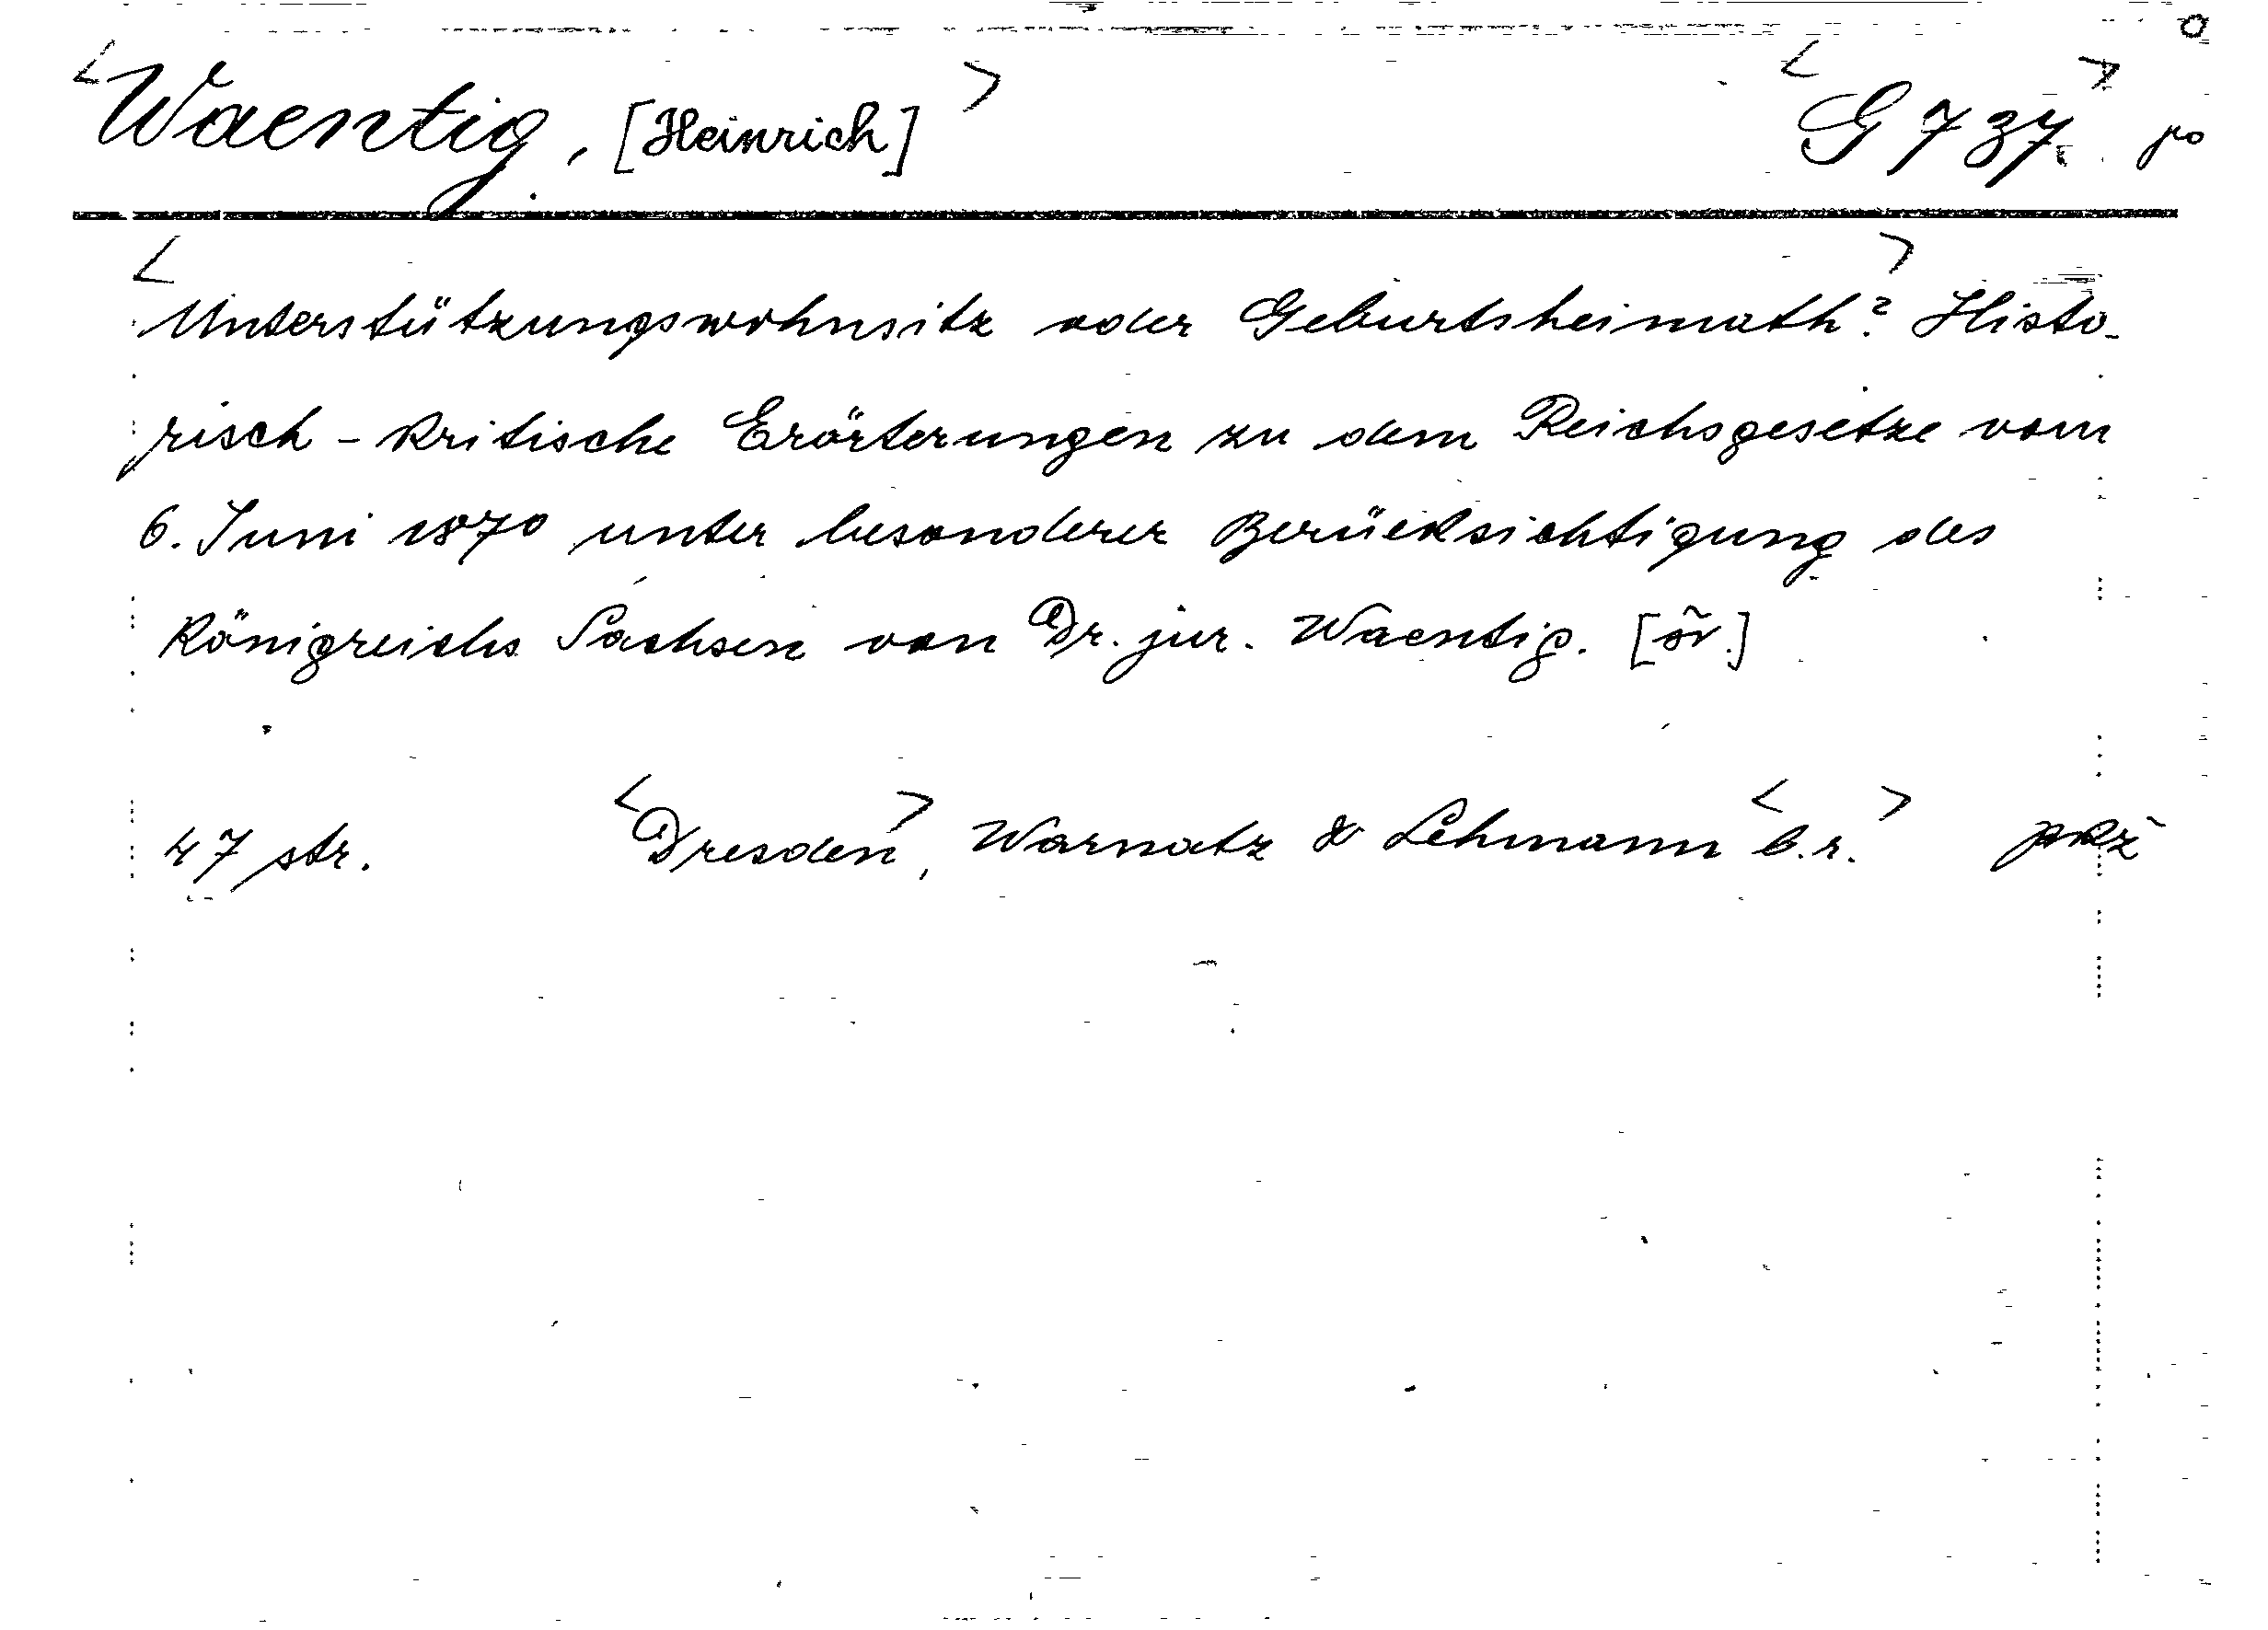 <Waentig, [Heinrich]> <G 737> po
<Unterstützungswohnsitz oder Geburtsheimath?> Histo-
risch-kritische Erörterungen zu dem Reichsgesetze vom
6. Juni 1870 unter besonderer Berücksichtigung des
Königreichs Sachsen von Dr. jur. Waentig. [õv.]
47 str. <Dresden>, Warnatz & Lehmann <b.r.>